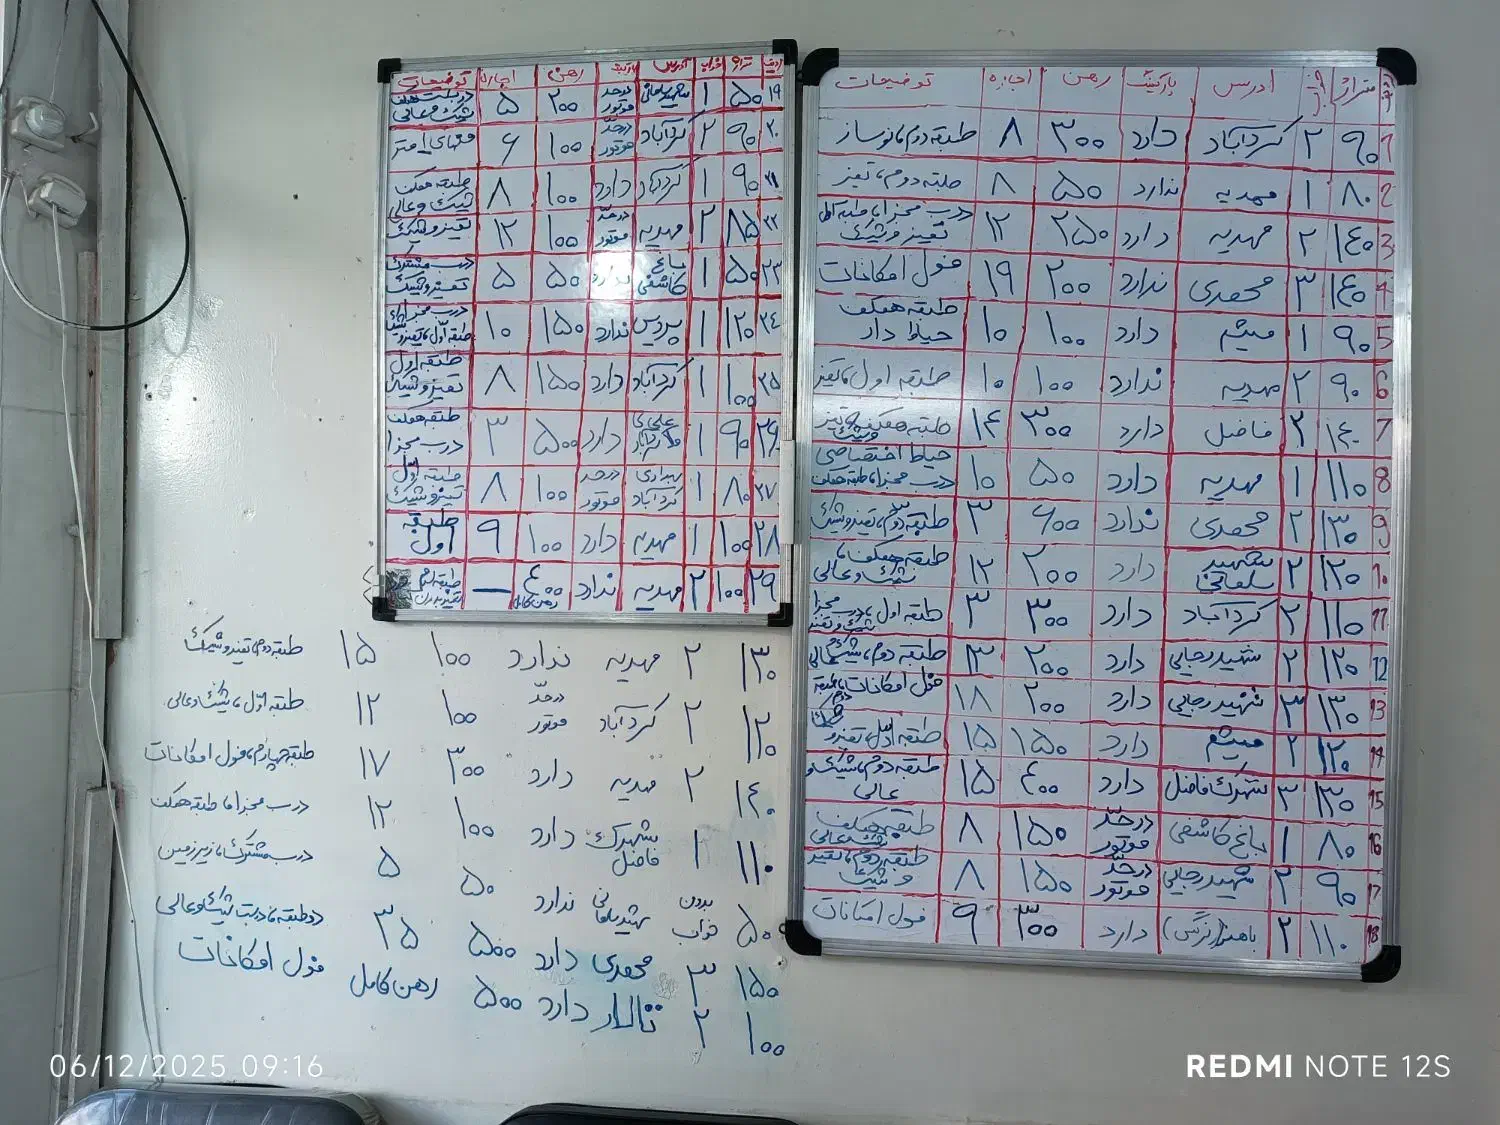 ردیف متراژ خواب ادرس پارکینگ رهن اجاره توضیحات
1 ۹۰ ۲ گردآباد دارد ۳۰۰ ۸ طبقه دوم، نوساز
2 ۸۰ ۱ مهدیه ندارد ۵۰ ۸ طبقه دوم، تمیز
3 ۱۴۰ ۲ مهدیه دارد ۲۵۰ ۱۲ درب مجزا، طبقه اول تمیز و شیک
4 ۱۴۰ ۳ محمدی ندارد ۲۰۰ ۱۹ فول امکانات
5 ۹۰ ۱ میثم دارد ۱۰۰ ۱۰ طبقه همکف حیاط دار
6 ۹۰ ۲ مهدیه ندارد ۱۰۰ ۱۰ طبقه اول، تمیز
7 ۱۴۰ ۲ فاضل دارد ۳۰۰ ۱۴ طبقه همکف، تمیز و شیک
8 ۱۱۰ ۱ مهدیه دارد ۵۰ ۱۰ حیاط اختصاصی درب مجزا، طبقه همکف
9 ۱۳۰ ۲ محمدی ندارد ۶۰۰ ۳ طبقه دوم، تمیز و شیک
10 ۱۲۰ ۲ شهید سلمانی دارد ۲۰۰ ۱۲ طبقه همکف، شیک و عالی
11 ۱۱۰ ۲ گردآباد دارد ۳۰۰ ۳ طبقه اول، درب مجزا شیک و تمیز
12 ۱۲۰ ۲ شهید رجایی دارد ۲۰۰ ۱۳ طبقه دوم، شیک و عالی
13 ۱۳۰ ۳ شهید رجایی دارد ۲۰۰ ۱۸ فول امکانات، طبقه دوم
14 ۱۲۰ ۲ میثم دارد ۱۵۰ ۱۵ طبقه اول، تمیز و
15 ۱۳۰ ۳ شهرک فاضل دارد ۴۰۰ ۱۵ طبقه دوم، شیک و عالی
16 ۸۰ ۱ باغ کاشفی در حدّ موتور ۱۵۰ ۸ طبقه همکف شیک و عالی
17 ۹۰ ۲ شهید رجایی در حدّ موتور ۱۵۰ ۸ طبقه دوم، تمیز و شیک
18 ۱۱۰ ۲ باهنر (نرگس) دارد ۳۰۰ ۹ فول امکانات
ردیف متراژ خواب ادرس پارکینگ رهن اجاره توضیحات
۱۹ ۵۰ ۱ شهید سلمانی در حد موتور ۲۰۰ ۵ دربست همکف شیک و عالی
۲۰ ۹۰ ۲ گردآباد در حد موتور ۱۰۰ ۶
۲۱ ۹۰ ۱ گردآباد دارد ۱۰۰ ۸ طبقه همکف شیک و عالی
۲۲ ۸۵ ۲ مهدیه در حدّ موتور ۱۰۰ ۱۲ تمیز و شیک
۲۳ ۵۰ ۱ باغ کاشفی ندارد ۵۰ ۵ درب مشترک تمیز و شیک
۲۴ ۱۲۰ ۱ پردیس ندارد ۱۵۰ ۱۰ درب مجزا طبقه اول، تمیز و شیک
۲۵ ۱۰۰ ۱ گردآباد دارد ۱۵۰ ۸ طبقه اول تمیز و شیک
۲۶ ۹۰ ۱ دارد ۵۰۰ ۳ طبقه همکف درب مجزا
۲۷ ۸۰ ۱ بهداری گردآباد در حد موتور ۱۰۰ ۸ طبقه اول تمیز و شیک
۲۸ ۱۰۰ ۱ مهدیه دارد ۱۰۰ ۹ طبقه اول
۲۹ ۱۰۰ ۲ مهدیه ندارد ۴۰۰ رهن کامل —
۱۳۰ ۲ مهدیه ندارد ۱۰۰ ۱۵ طبقه دوم، تمیز و شیک
۱۲۰ ۲ گردآباد در حدّ موتور ۱۰۰ ۱۲ طبقه اول، شیک و عالی
۱۴۰ ۲ مهدیه دارد ۳۰۰ ۱۷ طبقه چهارم، فول امکانات
۱۱۰ ۱ شهرک فاضل دارد ۱۰۰ ۱۲ درب مجزا، طبقه همکف
۵۰ بدون خواب شهید سلمانی ندارد ۵۰ ۵ درب مشترک، زیرزمین
۱۵۰ ۳ محمدی دارد ۵۰۰ ۳۵ دو طبقه، دربست شیک و عالی
۱۰۰ ۲ تالار دارد ۵۰۰ رهن کامل فول امکانات
06/12/2025 09:16
REDMI NOTE 12S